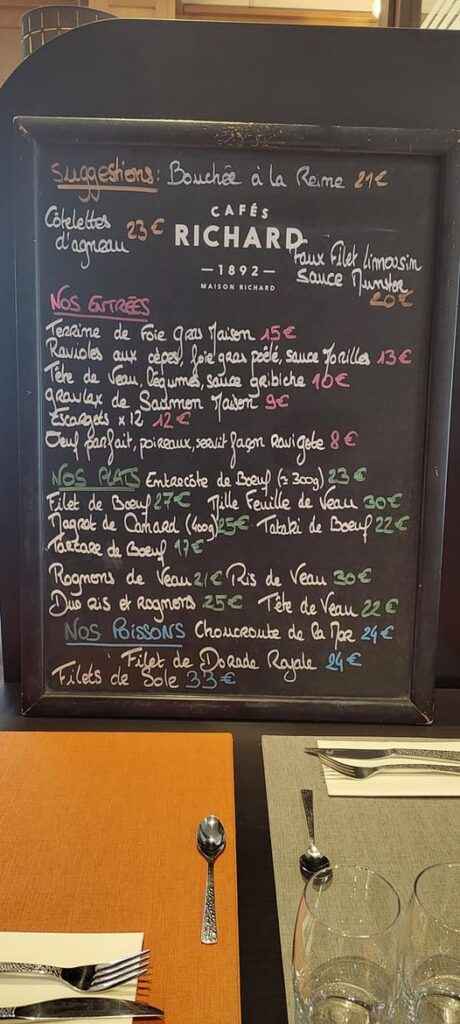 Suggestions: Bouchée à la Reine 21€
Côtelettes d'agneau 23€
CAFÉS
RICHARD
1892
MAISON RICHARD
Faux Filet Limousin
Sauce Munster
20€
NOS ENTRÉES
Terrine de Foie Gras Maison 15€
Ravioles aux cèpes, foie gras poêlé, sauce Morilles 13€
Tête de Veau, légumes, sauce gribiche 10€
Gravlax de Saumon Maison 9€
Escargots x 12 12€
Oeuf parfait, poireaux, servit façon ravigote 8€
NOS PLATS Entrecôte de Boeuf (≃ 300g) 23€
Filet de Boeuf 27€ Mille Feuille de Veau 30€
Magret de Canard (400g) 25€ Tataki de Boeuf 22€
Tartare de Boeuf 17€
Rognons de Veau 21€ Ris de Veau 30€
Duo ris et rognons 25€ Tête de Veau 22€
NOS POISSONS Choucroute de la Mer 24€
Filet de Dorade Royale 24€
Filets de Sole 33€